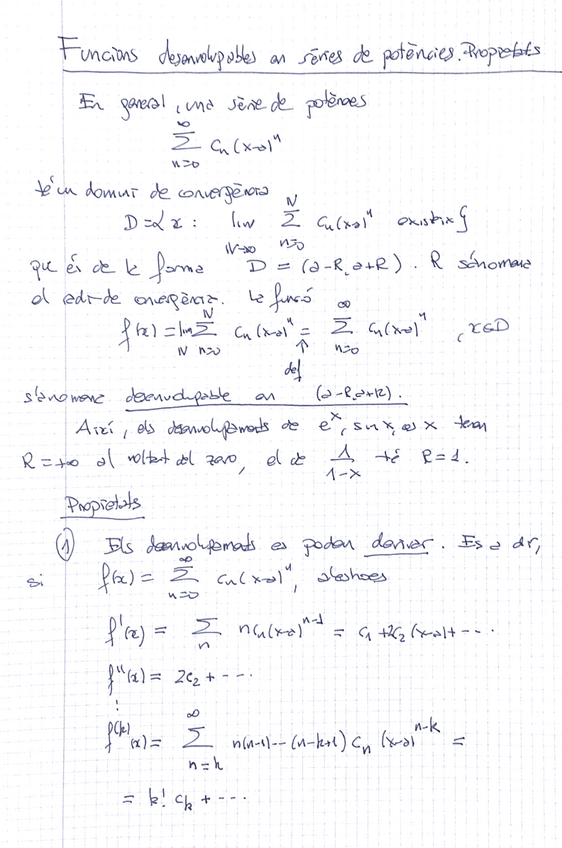 Funcions desenvolupables en sèries de potències. Propietats
En general, una sèrie de potències
∞
∑ cn(x-a)^n
n=0
té un domini de convergència
D = { x : lim_{N→∞} ∑_{n=0}^{N} cn(x-a)^n existeix }
que és de la forma D = (a-R, a+R). R s'anomena
el radi de convergència. La funció
f(x) = lim_N ∑_{n=0}^{N} cn(x-a)^n = ∑_{n=0}^{∞} cn(x-a)^n , x∈D
↑
def
s'anomena desenvolupable en (a-R, a+R).
Així, els desenvolupaments de e^x, sin x, cos x tenen
R = +∞ al voltant del zero, el de 1/(1-x) té R=1.
Propietats
① Els desenvolupaments es poden derivar. És a dir,
si f(x) = ∑_{n=0}^{∞} cn(x-a)^n, aleshores
f'(x) = ∑_n n cn(x-a)^{n-1} = c1 + 2c2(x-a) + ···
f''(x) = 2c2 + ···
⋮
f^(k)(x) = ∑_{n=k}^{∞} n(n-1)···(n-k+1) cn (x-a)^{n-k} =
= k! ck + ···